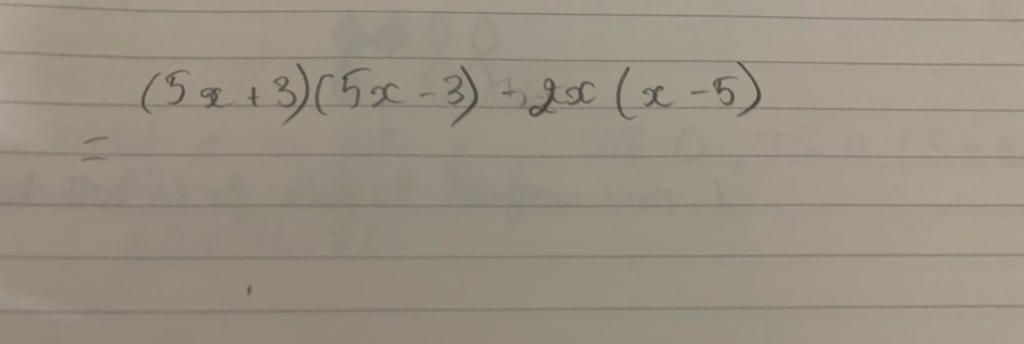 (5x + 3)(5x - 3) + 2x (x - 5)
=